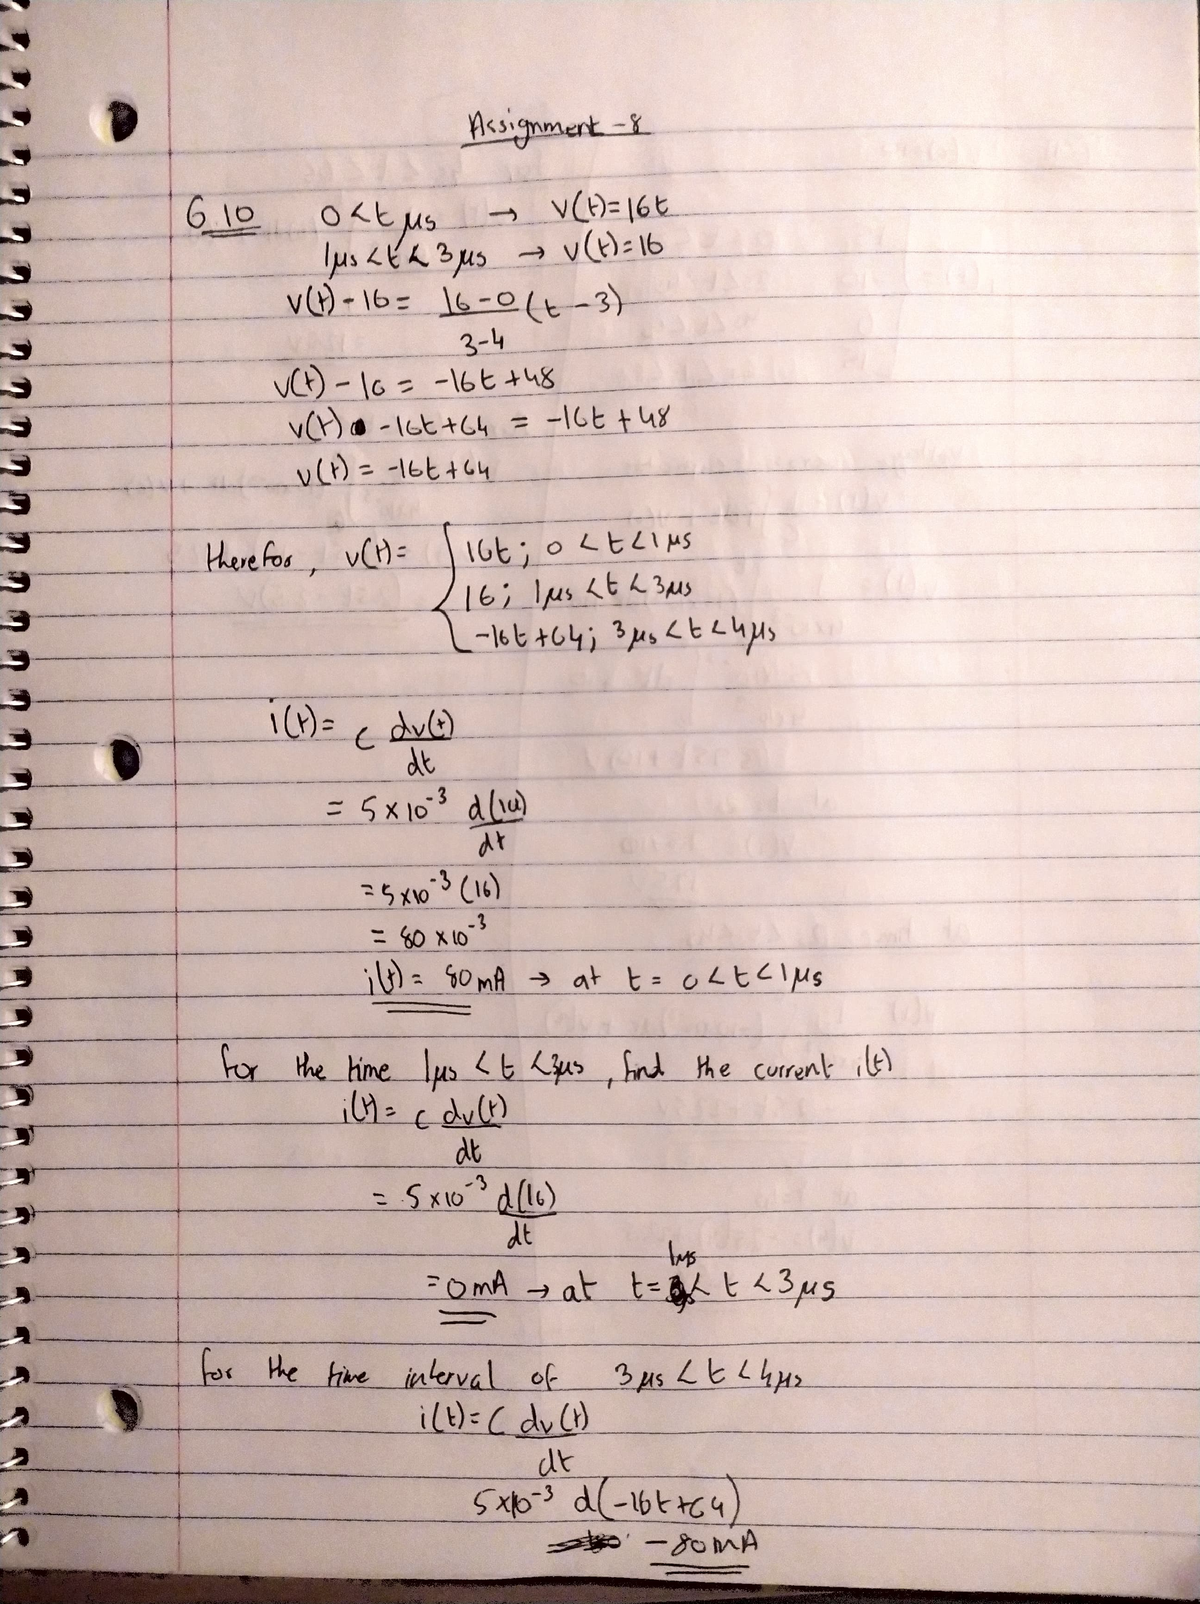 Assignment - 8
6.10 0 < t μs → v(t) = 16t
1μs < t < 3μs → v(t) = 16
v(t) - 16 = 16-0/3-4 (t - 3)
v(t) - 16 = -16t + 48
v(t) -16t + 64 = -16t + 48
v(t) = -16t + 64
therefor, v(t) = { 16t; 0 < t < 1μs
16; 1μs < t < 3μs
-16t + 64; 3μs < t < 4μs
i(t) = C dv(t)/dt
= 5 × 10⁻³ d(16t)/dt
= 5 × 10⁻³ (16)
= 80 × 10⁻³
i(t) = 80mA → at t = 0 < t < 1μs
for the time 1μs < t < 3μs, find the current i(t)
i(t) = C dv(t)/dt
= 5 × 10⁻³ d(16)/dt
= 0mA → at t = 1μs < t < 3μs
for the time interval of 3μs < t < 4μs
i(t) = C dv(t)/dt
5 × 10⁻³ d(-16t + 64)
-80mA